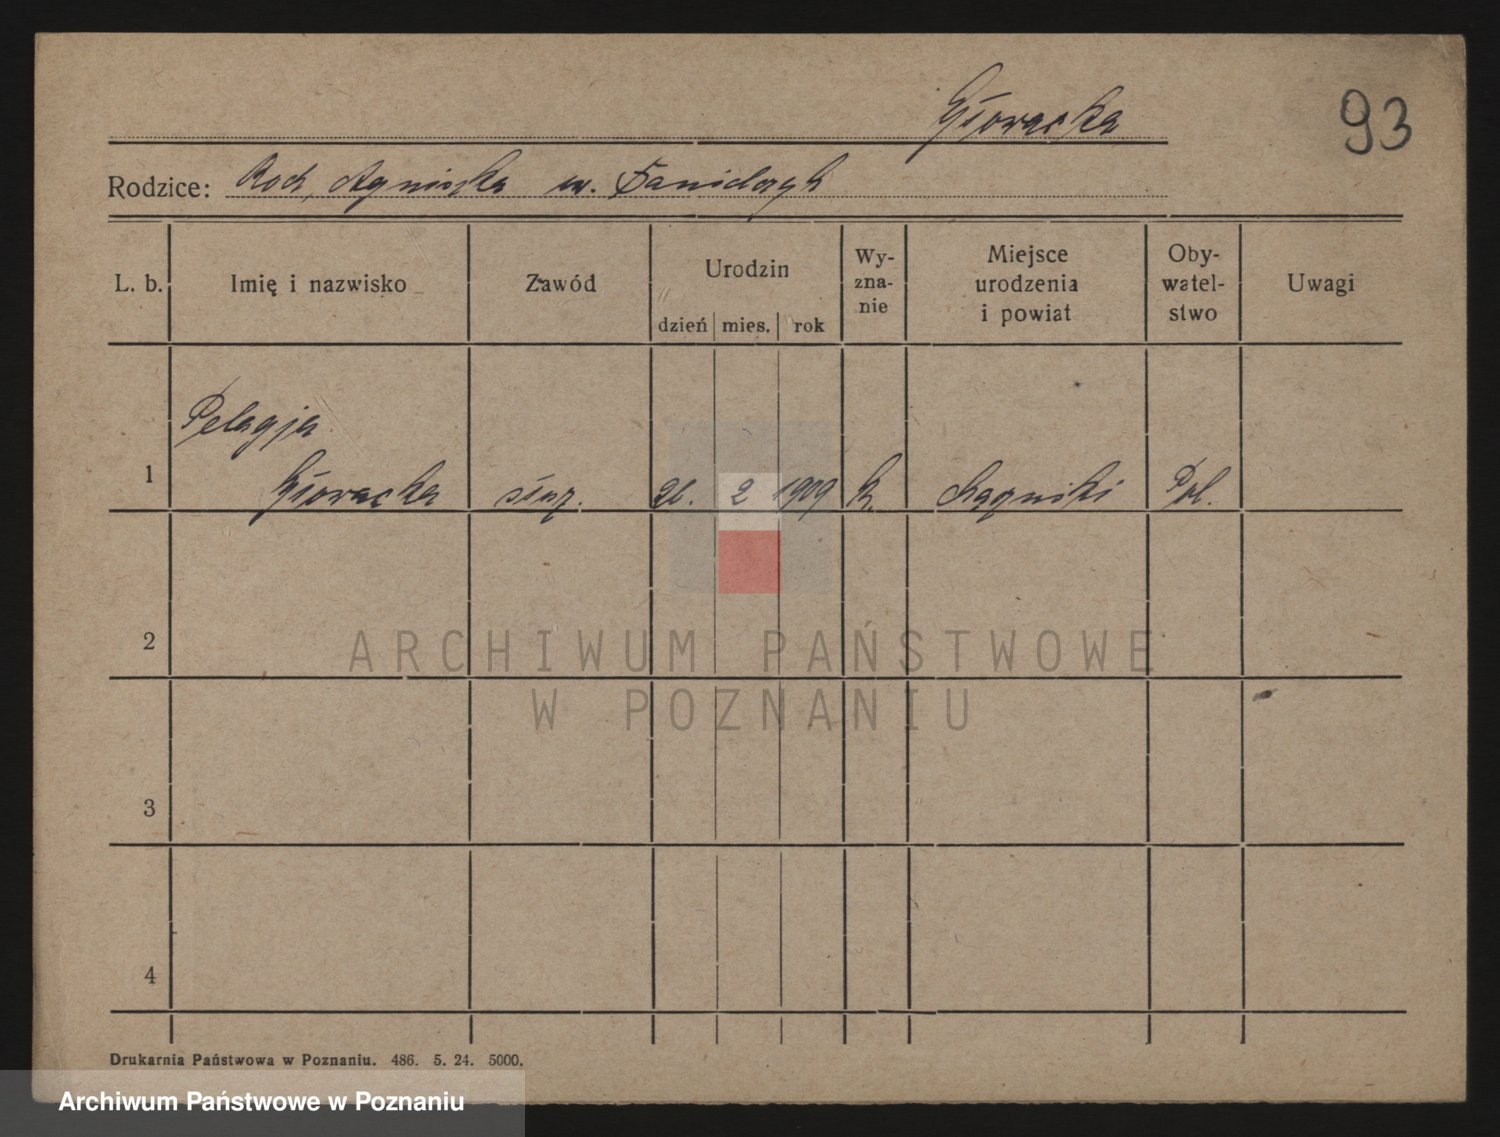 Głowacka
93
Rodzice: Roch, Agnieszka ur. Danielczyk
L. b. Imię i nazwisko Zawód Urodzin dzień mies. rok Wy-zna-nie Miejsce urodzenia i powiat Oby-watel-stwo Uwagi
Pelagja
1 Głowacka służ. 26. 2 1909 k. Pol.
2
ARCHIWUM PAŃSTWOWE
W POZNANIU
3
4
Drukarnia Państwowa w Poznaniu. 486. 5. 24. 5000.
Archiwum Państwowe w Poznaniu